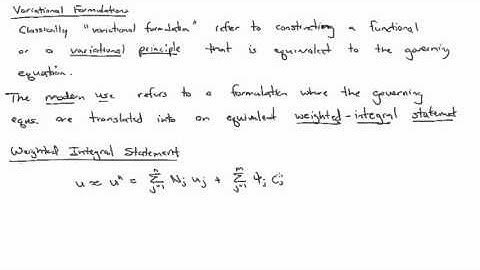 Variational Formulations
Classically "variational formulation" refer to constructing a functional
or a variational principle that is equivalent to the governing
equation.
The modern use refers to a formulation where the governing
eqns. are translated into an equivalent weighted-integral statement
Weighted Integral Statement
u ≈ uʰ = Σⁿⱼ₌₁ Nⱼ uⱼ + Σᵐⱼ₌₁ ψⱼ Cⱼ